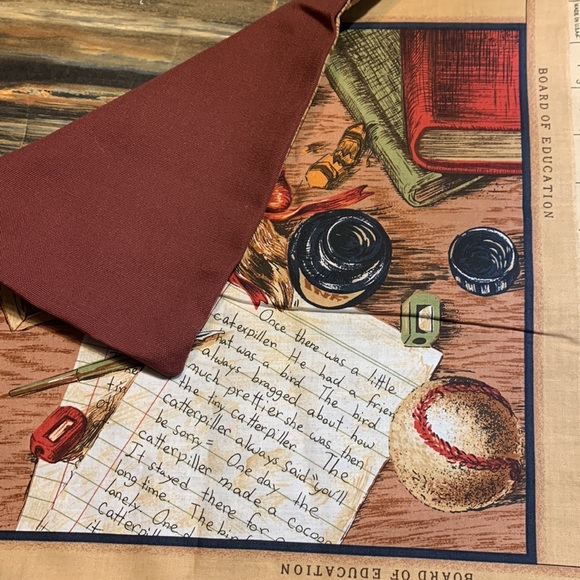 BOARD OF EDUCATION
Once there was a little
caterpiller. He had a frien
hat was a bird. The bird
always bragged about how
much prettier she was then
the tiny caterpiller. The
catterpiller always said "you'll
be sorry= One day the
catterpiller made a cocoon
It stayed there for a
long time. The bir
lonely. One d
catterpill
it
BOARD OF EDUCATION